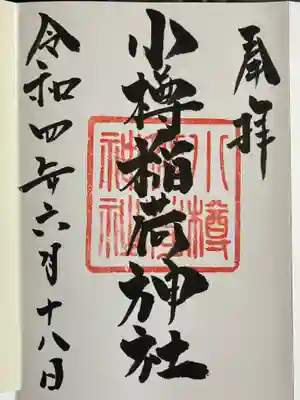 奉拝
小樽稲荷神社
小樽稲荷神社
令和四年六月十八日